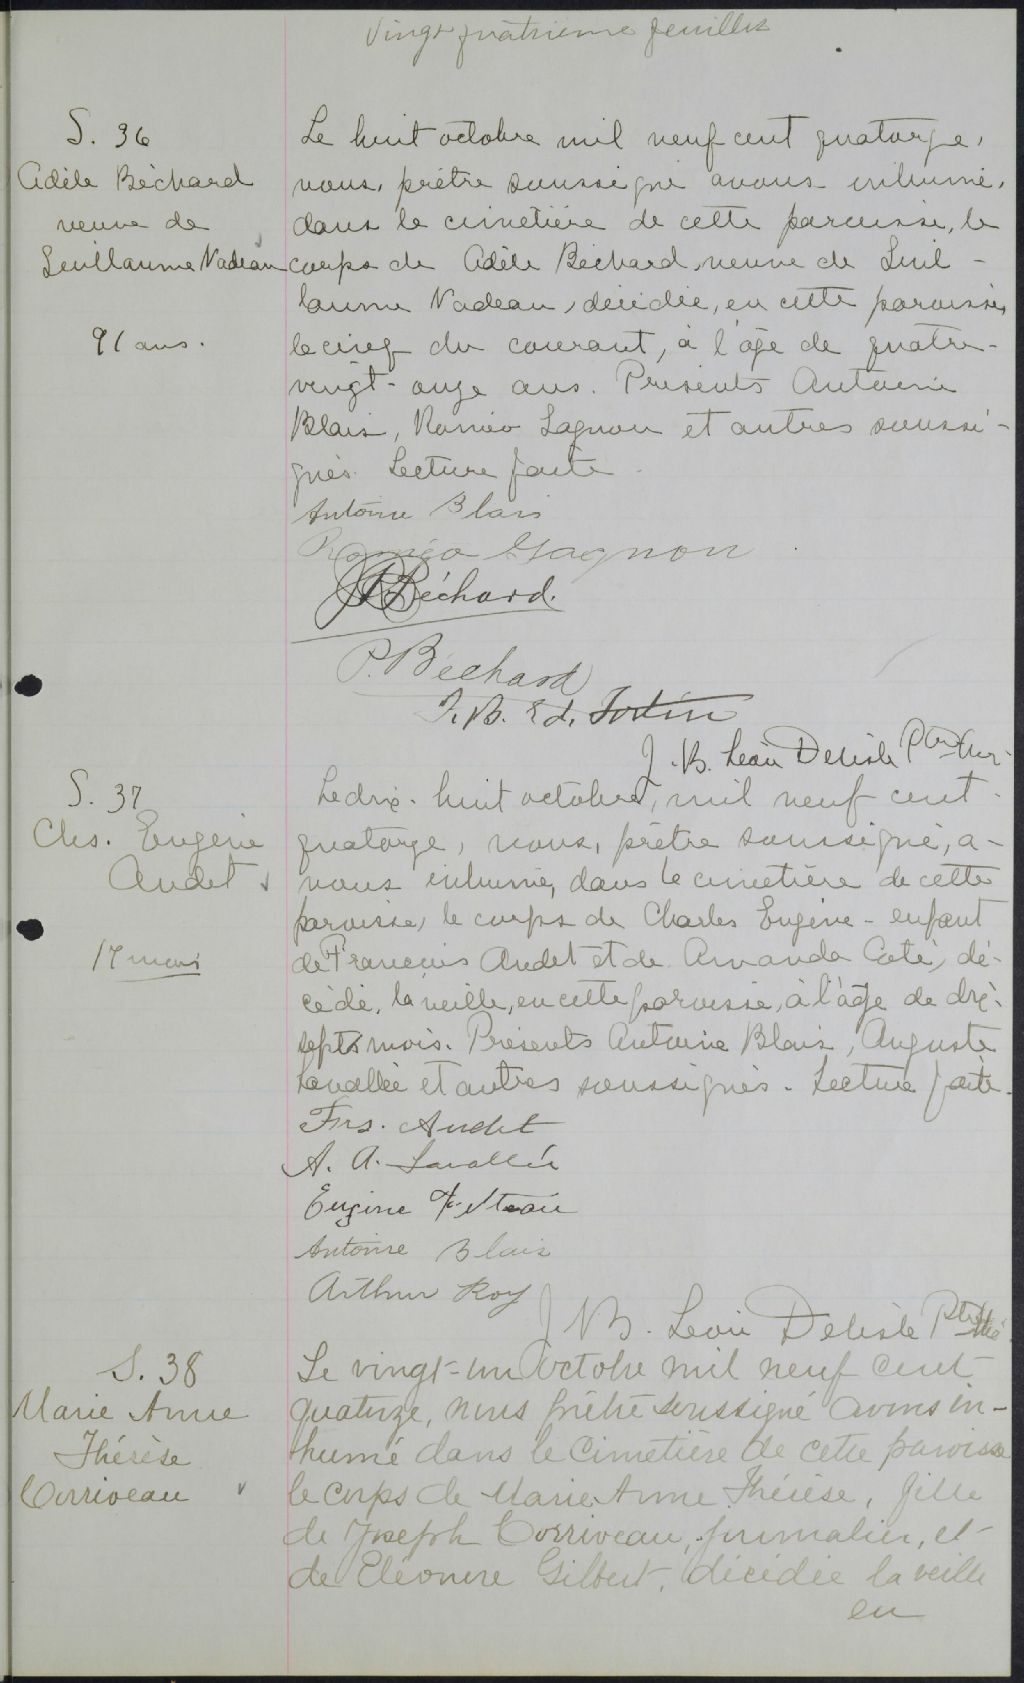 Vingt quatrième feuillet
S. 36
Adèle Béchard
veuve de
Guillaume Nadeau
91 ans.
Le huit octobre mil neuf cent quatorze,
nous, prêtre soussigné avons inhumé,
dans le cimetière de cette paroisse, le
corps de Adèle Béchard, veuve de Guil-
laume Nadeau, décédée, en cette paroisse,
le cinq du courant, à l'âge de quatre-
vingt-onze ans. Présents Antoine
Blais, Roméo Gagnon et autres soussi-
gnés. Lecture faite.
Antoine Blais
Roméo Gagnon
Béchard.
P. Béchard
J. B. Ed. Fortin
J. B. Léon Delisle Ptre
S. 37
Chs. Eugène
Audet
17 mois
Le dix-huit octobre, mil neuf cent
quatorze, nous, prêtre soussigné, a-
vons inhumé, dans le cimetière de cette
paroisse, le corps de Charles Eugène - enfant
de François Audet et de Amanda Coté, dé-
cédé, la veille, en cette paroisse, à l'âge de dix-
sept mois. Présents Antoine Blais, Auguste
Lavallée et autres soussignés. Lecture faite.
Frs. Audet
A. A. Lavallée
Eugène
Antoine Blais
Arthur Roy
J. B. Léon Delisle Ptre
S. 38
Marie Anne
Thérèse
Corriveau
Le vingt-un octobre mil neuf cent
quatorze, nous prêtre soussigné avons in-
humé dans le cimetière de cette paroisse
le corps de Marie Anne Thérèse, fille
de Joseph Corriveau, journalier, et
de Eléonore Gilbert, décédée la veille
en